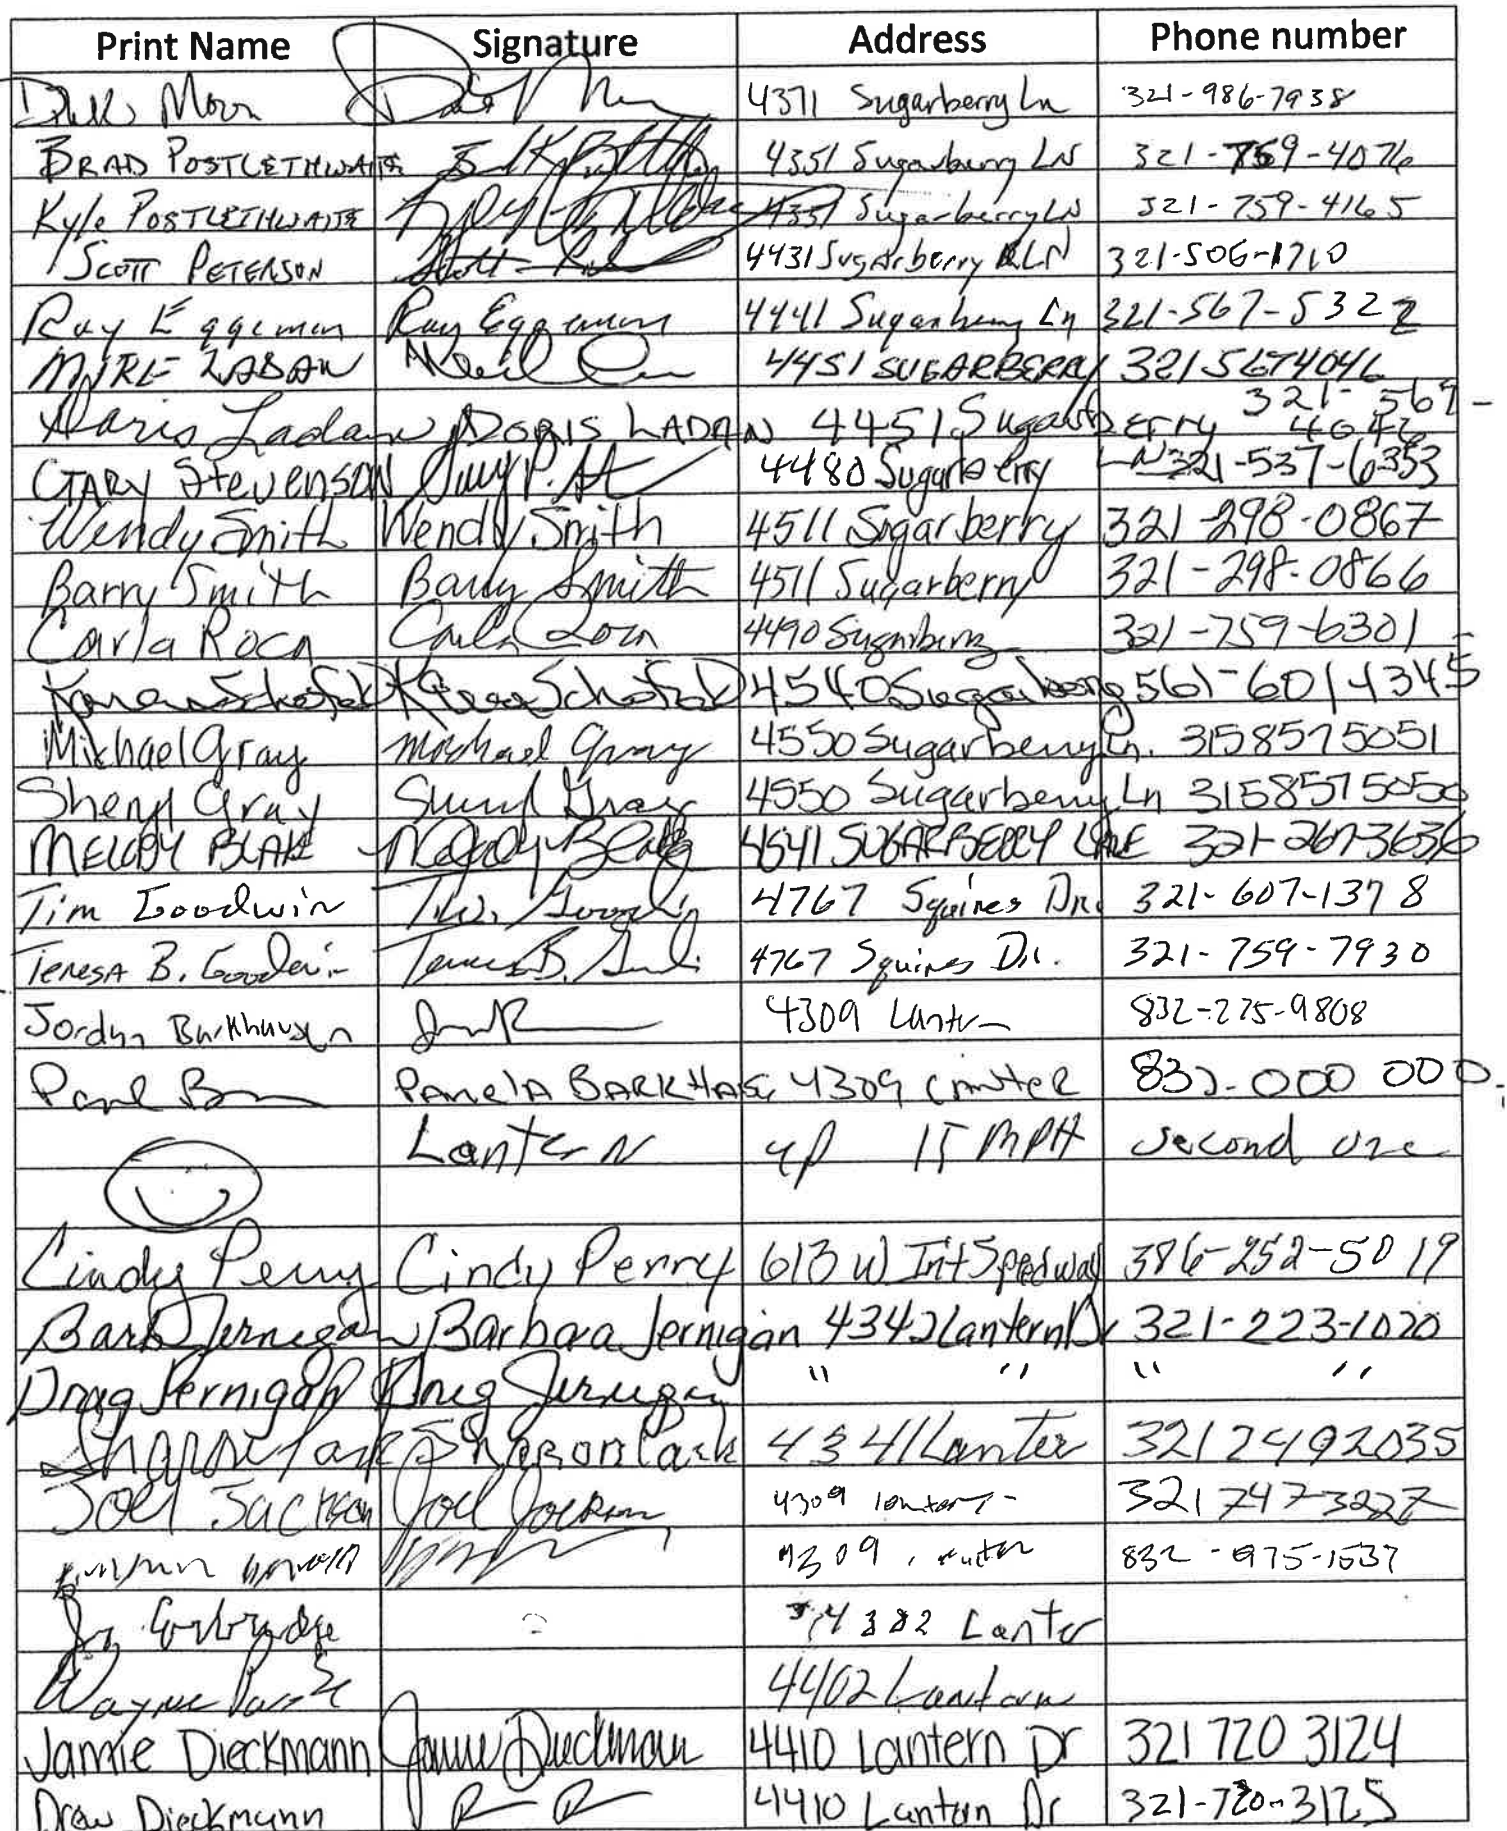 Print Name Signature Address Phone number
4371 Sugarberry Ln 321-986-7938
BRAD POSTLETHWAITE 4351 Sugarberry LN 321-759-4076
Kyle POSTLETHWAITE 4351 Sugarberry LN 321-759-4165
SCOTT PETERSON 4431 Sugarberry LN 321-506-1710
Ray Eggeman Ray Eggeman 4441 Sugarberry Ln 321-567-5322
4451 SUGARBERRY 3215674046
Doris Ladan DORIS LADAN 4451 Sugarberry 321-567-4046
GARY Stevenson 4480 Sugarberry LN 321-537-6353
Wendy Smith Wendy Smith 4511 Sugarberry 321-298-0867
Barry Smith Barry Smith 4511 Sugarberry 321-298-0866
Carla Roca Carla Roca 4490 Sugarberry 321-759-6301
4540 Sugarberry 561-601 4345
Michael Gray Michael Gray 4550 Sugarberry Ln. 3158575051
Sheryl Gray Sheryl Gray 4550 Sugarberry Ln 3158575050
MELODY BLAKE Melody Blake 4541 SUGARBERRY LANE 321-267-3636
Tim Goodwin Tim Goodwin 4767 Squires Dr. 321-607-1378
TERESA B. Goodwin Teresa B. 4767 Squires Dr. 321-759-7930
Jordyn Barkhausen 4309 Lantern 832-275-9808
PAMELA BARKHAUS 4309 Lanter 832-000 000
Lantern up 15 MPH second one
Cindy Perry Cindy Perry 613 W Int Speedway 386-252-5019
Barb Jernigan Barbara Jernigan 4342 Lantern Dr 321-223-1020
Drag Jernigan Jernigan " " " "
Sharon Clark Sharon Clark 4341 Lanter 3212492035
Joel Jackson Joel Jackson 4309 lantern 321 747-3227
4309 832-975-1537
4382 Lanter
Wayne 4402 Lantern
Jamie Dieckmann Jamie Dieckmann 4410 Lantern Dr 321 720 3124
Drew Dieckmann 4410 Lantern Dr 321-720-3125